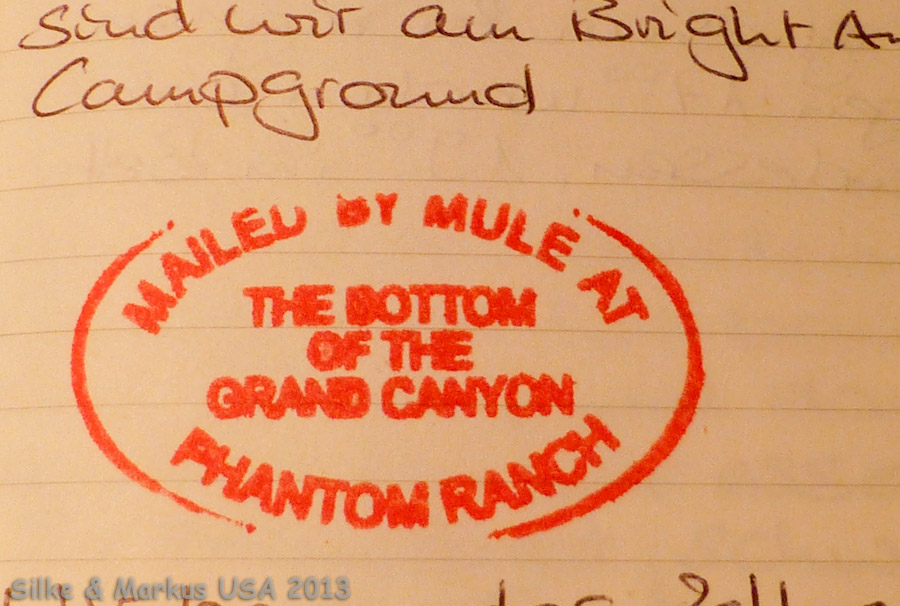 Sind wir am Bright An
Campground
MAILED BY MULE AT
THE BOTTOM
OF THE
GRAND CANYON
PHANTOM RANCH
Silke & Markus USA 2013